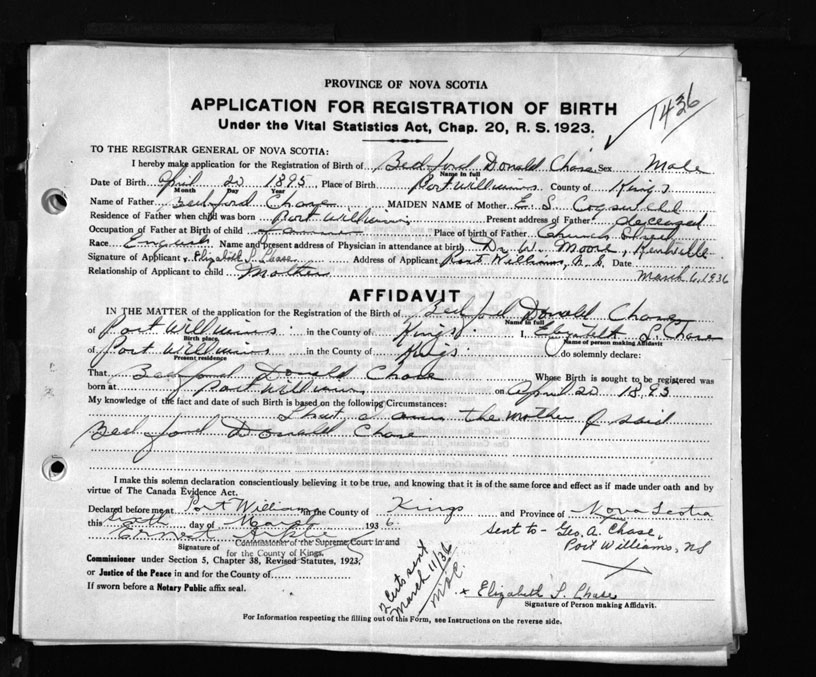 PROVINCE OF NOVA SCOTIA
1436
APPLICATION FOR REGISTRATION OF BIRTH
Under the Vital Statistics Act, Chap. 20, R. S. 1923.
TO THE REGISTRAR GENERAL OF NOVA SCOTIA:
I hereby make application for the Registration of Birth of Bedford Donald Chase Sex Male
Name in full
Date of Birth April 20 1895 Place of Birth Port Williams County of Kings
Month Day Year
Name of Father Bedford Chase MAIDEN NAME of Mother E. S. Cogswell
Residence of Father when child was born Port Williams Present address of Father deceased
Occupation of Father at Birth of child Farmer Place of birth of Father Church Street
Race English Name and present address of Physician in attendance at birth Dr W. Moore, Kentville
Signature of Applicant Elizabeth S. Chase Address of Applicant Port Williams, N. S. Date
Relationship of Applicant to child Mother March 6, 1936
AFFIDAVIT
IN THE MATTER of the application for the Registration of the Birth of Bedford Donald Chase
Name in full
of Port Williams in the County of Kings I, Elizabeth S. Chase
Birth place Name of person making Affidavit
of Port Williams in the County of Kings do solemnly declare:
Present residence
That Bedford Donald Chase Whose Birth is sought to be registered was
born at Port Williams on April 20 1895
My knowledge of the fact and date of such Birth is based on the following Circumstances:
That I am the mother of said
Bedford Donald Chase
I make this solemn declaration conscientiously believing it to be true, and knowing that it is of the same force and effect as if made under oath and by
virtue of The Canada Evidence Act.
Declared before me at Port Williams in the County of Kings and Province of Nova Scotia
this sixth day of March 1936.
Ernest
Signature of Commissioner of the Supreme Court in and
for the County of Kings.
Commissioner under Section 5, Chapter 38, Revised Statutes, 1923,
or Justice of the Peace in and for the County of
If sworn before a Notary Public affix seal.
sent to - Geo. A. Chase,
Port Williams, NS
2 Certs sent
March 11/36
x Elizabeth S. Chase
Signature of Person making Affidavit.
For Information respecting the filling out of this Form, see Instructions on the reverse side.